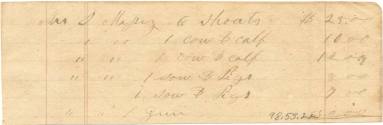 Mr S 6 Shoats $ 25.00
" " 1 cow & calf 10 00
" " 1 cow & calf 12 00
" " 1 sow & Pigs 00
" " 1 sow & Pigs 7 00
" " 1 Gun 98.53.2